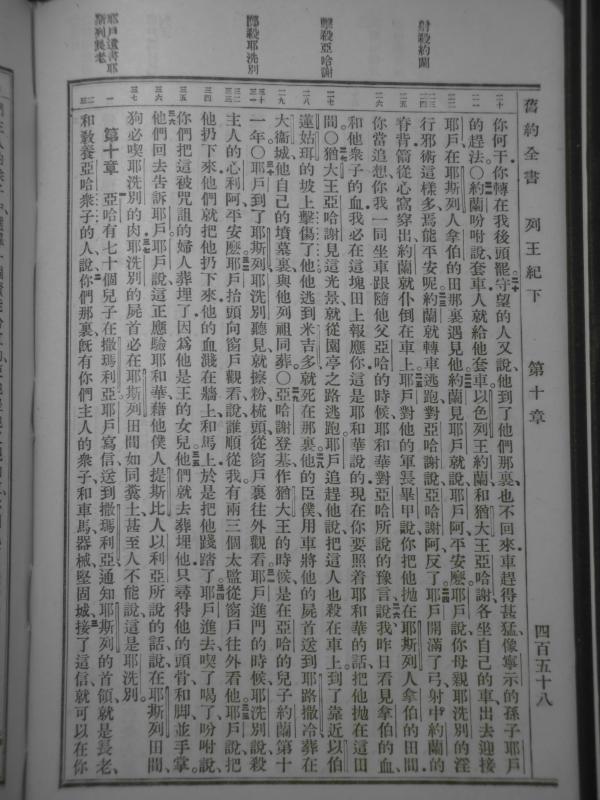 舊約全書 列王紀下 第十章 四百五十八
射殺約蘭
擊殺亞哈謝
擲殺耶洗別
二十
二一
二二
二三
二四
二五
二六
二七
二八
二九
三十
三一
三二
三三
三四
三五
三六
三七
一
二
三
你何干你轉在我後頭罷守望的人又說他到了他們那裏也不回來車趕得甚猛像寧示的孫子耶戶
的趕法○約蘭吩咐說套車人就給他套車以色列王約蘭和猶大王亞哈謝各坐自己的車出去迎接
耶戶在耶斯列人拿伯的田那裏遇見他約蘭見耶戶就說耶戶阿平安麽耶戶說你母親耶洗別的淫
行邪術這樣多焉能平安呢約蘭就轉車逃跑對亞哈謝說亞哈謝阿反了耶戶開滿了弓射中約蘭的
脊背箭從心窩穿出約蘭就仆倒在車上耶戶對他的軍長畢甲說你把他抛在耶斯列人拿伯的田間
你當追想你我一同坐車跟隨他父亞哈的時候耶和華對亞哈所說的豫言說我昨日看見拿伯的血
和他衆子的血我必在這塊田上報應你這是耶和華說的現在你要照着耶和華的話把他抛在這田
間○猶大王亞哈謝見這光景就從園亭之路逃跑耶戶追趕他說把這人也殺在車上到了靠近以伯
蓮姑珥的坡上擊傷了他他逃到米吉多就死在那裏他的臣僕用車將他的屍首送到耶路撒冷葬在
大衞城他自己的墳墓裏與他列祖同葬○亞哈謝登基作猶大王的時候是在亞哈的兒子約蘭第十
一年○耶戶到了耶斯列耶洗別聽見就擦粉梳頭從窗戶裏往外觀看耶戶進門的時候耶洗別說殺
主人的心利阿平安麽耶戶抬頭向窗戶觀看說誰順從我有兩三個太監從窗戶往外看他耶戶說把
他扔下來他們就把他扔下來他的血濺在牆上和馬上於是把他踐踏了耶戶進去喫了喝了吩咐說
你們把這被咒詛的婦人葬埋了因爲他是王的女兒他們就去葬埋他只尋得他的頭骨和脚並手掌
他們回去告訴耶戶耶戶說這正應驗耶和華藉他僕人提斯比人以利亞所說的話說在耶斯列田間
狗必喫耶洗別的肉耶洗別的屍首必在耶斯列田間如同糞土甚至人不能說這是耶洗別
第十章 亞哈有七十個兒子在撒瑪利亞耶戶寫信送到撒瑪利亞通知耶斯列的首領就是長老
和敎養亞哈衆子的人說你們那裏旣有你們主人的衆子和車馬器械堅固城接了這信就可以在你